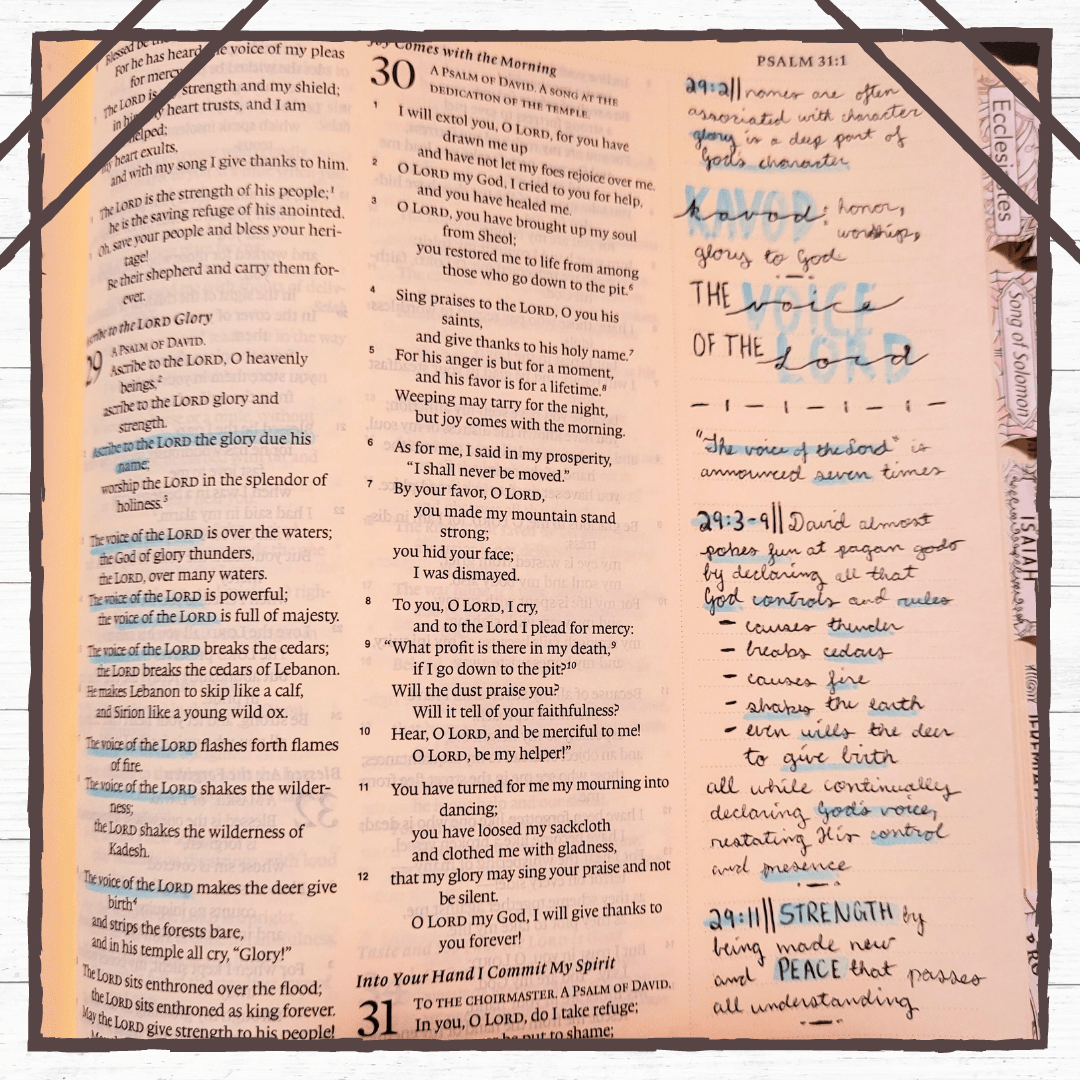 Blessed be the
For he has heard the voice of my pleas
for mercy.
The LORD is my strength and my shield;
in him my heart trusts, and I am
helped;
my heart exults,
and with my song I give thanks to him.
The LORD is the strength of his people;¹
he is the saving refuge of his anointed.
Oh, save your people and bless your heri-
tage!
Be their shepherd and carry them for-
ever.
Ascribe to the LORD Glory
29 A PSALM OF DAVID.
Ascribe to the LORD, O heavenly
beings,²
ascribe to the LORD glory and
strength.
Ascribe to the LORD the glory due his
name;
worship the LORD in the splendor of
holiness.³
The voice of the LORD is over the waters;
the God of glory thunders,
the LORD, over many waters.
The voice of the LORD is powerful;
the voice of the LORD is full of majesty.
The voice of the LORD breaks the cedars;
the LORD breaks the cedars of Lebanon.
He makes Lebanon to skip like a calf,
and Sirion like a young wild ox.
The voice of the LORD flashes forth flames
of fire.
The voice of the LORD shakes the wilder-
ness;
the LORD shakes the wilderness of
Kadesh.
The voice of the LORD makes the deer give
birth⁴
and strips the forests bare,
and in his temple all cry, "Glory!"
The LORD sits enthroned over the flood;
the LORD sits enthroned as king forever.
May the LORD give strength to his people!
Joy Comes with the Morning
30 A PSALM OF DAVID. A SONG AT THE
DEDICATION OF THE TEMPLE.
1 I will extol you, O LORD, for you have
drawn me up
and have not let my foes rejoice over me.
2 O LORD my God, I cried to you for help,
and you have healed me.
3 O LORD, you have brought up my soul
from Sheol;
you restored me to life from among
those who go down to the pit.⁶
4 Sing praises to the LORD, O you his
saints,
and give thanks to his holy name.⁷
5 For his anger is but for a moment,
and his favor is for a lifetime.⁸
Weeping may tarry for the night,
but joy comes with the morning.
6 As for me, I said in my prosperity,
"I shall never be moved."
7 By your favor, O LORD,
you made my mountain stand
strong;
you hid your face;
I was dismayed.
8 To you, O LORD, I cry,
and to the Lord I plead for mercy:
9 "What profit is there in my death,⁹
if I go down to the pit?¹⁰
Will the dust praise you?
Will it tell of your faithfulness?
10 Hear, O LORD, and be merciful to me!
O LORD, be my helper!"
11 You have turned for me my mourning into
dancing;
you have loosed my sackcloth
and clothed me with gladness,
12 that my glory may sing your praise and not
be silent.
O LORD my God, I will give thanks to
you forever!
Into Your Hand I Commit My Spirit
31 TO THE CHOIRMASTER. A PSALM OF DAVID.
In you, O LORD, do I take refuge;
be put to shame;
PSALM 31:1
29:2|| names are often
associated with character
glory is a deep part of
God's character
KAVOD
kavod: honor,
worship,
glory to God
THE voice VOICE
OF THE Lord LORD
"The voice of the Lord" is
announced seven times
29:3-9|| David almost
pokes fun at pagan gods
by declaring all that
God controls and rules
- causes thunder
- breaks cedars
- causes fire
- shakes the earth
- even wills the deer
to give birth
all while continually
declaring God's voice,
restating His control
and presence
29:11|| STRENGTH by
being made new
and PEACE that passes
all understanding
Ecclesiastes
Song of Solomon
ISAIAH
JEREMIAH